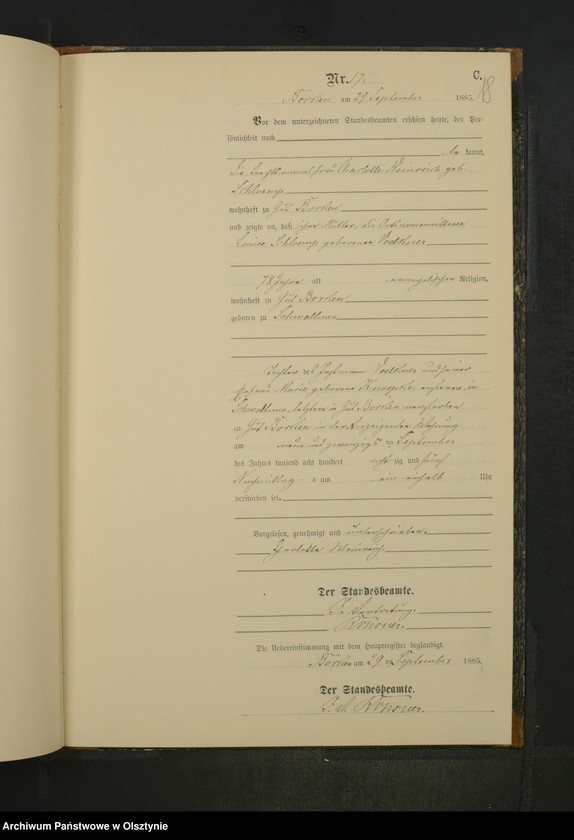 C.
Nr. 17.
18
Borken am 29 September 1885.
Vor dem unterzeichneten Standesbeamten erschien heute, der Per-
sönlichkeit nach
be kannt,
die Instmannsfrau Charlotte Weinreich geb.
wohnhaft zu Gut Borken
und zeigte an, daß ihre Mutter, die
Louise geborene
78 Jahre alt evangelischer Religion,
wohnhaft zu Gut Borken
geboren zu Schwollmen
Tochter des Instmann und seiner
Ehefrau Marie geborene ersterer in
letztere in Gut Borken verstorben
zu Gut Borken in der Anzeigenden Wohnung
am neun und zwanzigs ten September
des Jahres tausend acht hundert acht zig und fünf
Nachmittag s um ein einhalb Uhr
verstorben sei.
Vorgelesen, genehmigt und unterschrieben.
Charlotte Weinreich.
Der Standesbeamte.
In Vertretung.
Die Uebereinstimmung mit dem Hauptregister beglaubigt.
Borken am 29 ten September 1885.
Der Standesbeamte.
Archiwum Państwowe w Olsztynie